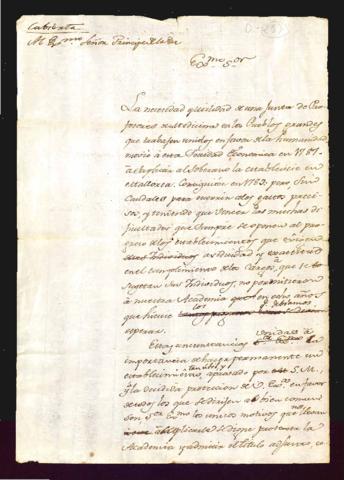 Cubierta
Al Exmo. Señor Principe de la Paz
Exmo. Sor.
La necesidad y utilidad de una Junta de Pro-
fesores de Medicina en los Pueblos grandes
que trabajen unidos en favor de la humanidad
movió a esta Sociedad Economica en 1781
a suplicar al Soberano la estableciese en
esta
Consiguiólo en 1783. pero, sin
Caudales para ocurrir a los gastos preci-
sos, y teniendo que vencer las muchas di-
ficultades que siempre se oponen al pro-
greso de los establecimientos que exigen
asiduidad y exactitud
en el cumplimiento de los cargos, a que se
sugetan sus Individuos, no permitieron
à nuestra Academia que en años
que hiciese los progresos que debiamos
esperar.
Estas circunstancias
importancia de hacer permanente un
establecimiento tan util, y aprobado por S. M.,
y la decidida proteccion de V. Exa. en favor
de todos los que se dirijen al bien comun
son Sor. Exmo. los unicos motivos que
a suplicarle se digne proteger la
Academia y admitir el titulo adjunto, co